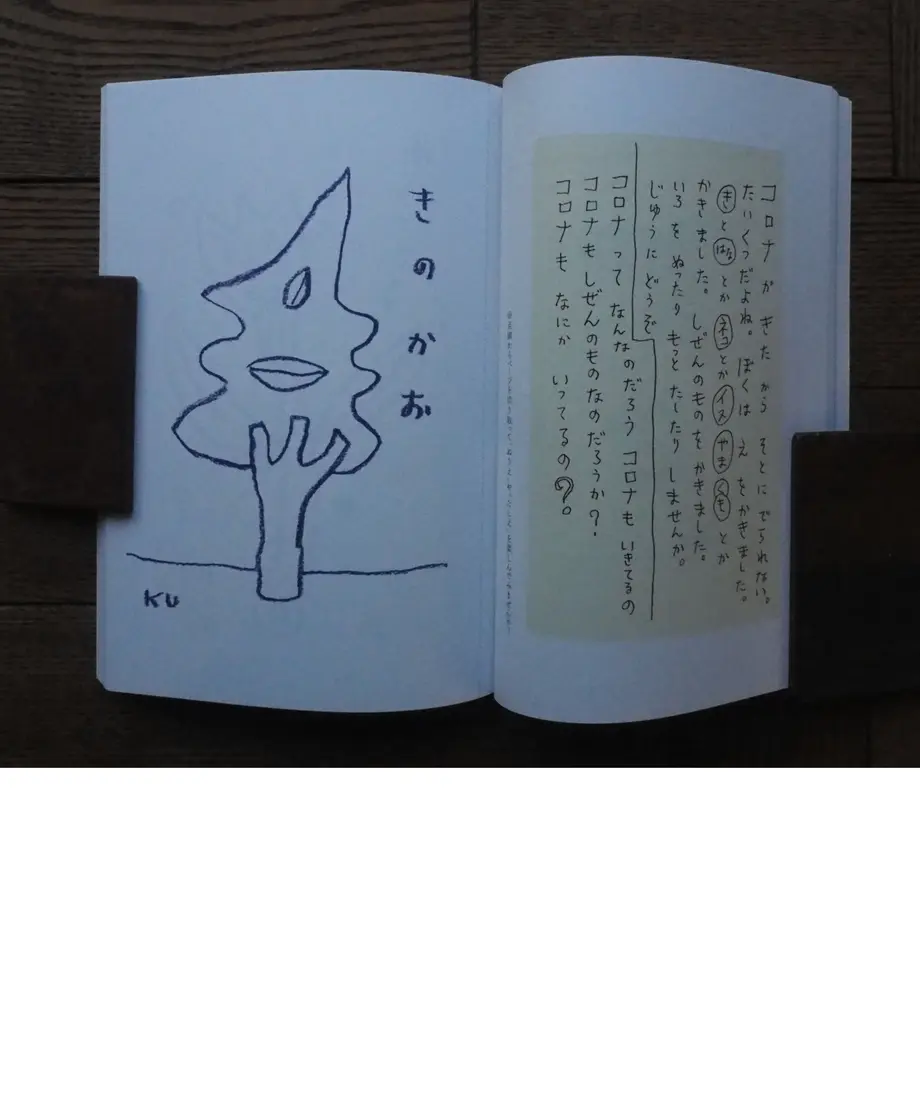 コロナ が きた から そとに でられない。
たいくつだよね。 ぼくは え をかきました。
き と はな とか ネコ とか イス やま くも とか
かきました。 しぜんのものを かきました。
いろ を ぬったり もっと たしたり しませんか。
じゅうに どうぞ
コロナ って なんなのだろう コロナも いきてるの
コロナ も しぜんのものなのだろうか?
コロナ も なにか いってるの?。
きのかお
KU